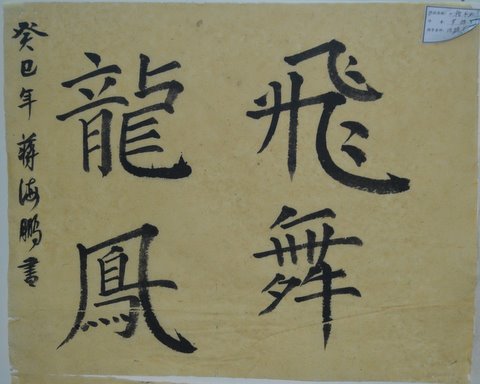 飛舞
龍鳳
癸巳年蔣海鵬書